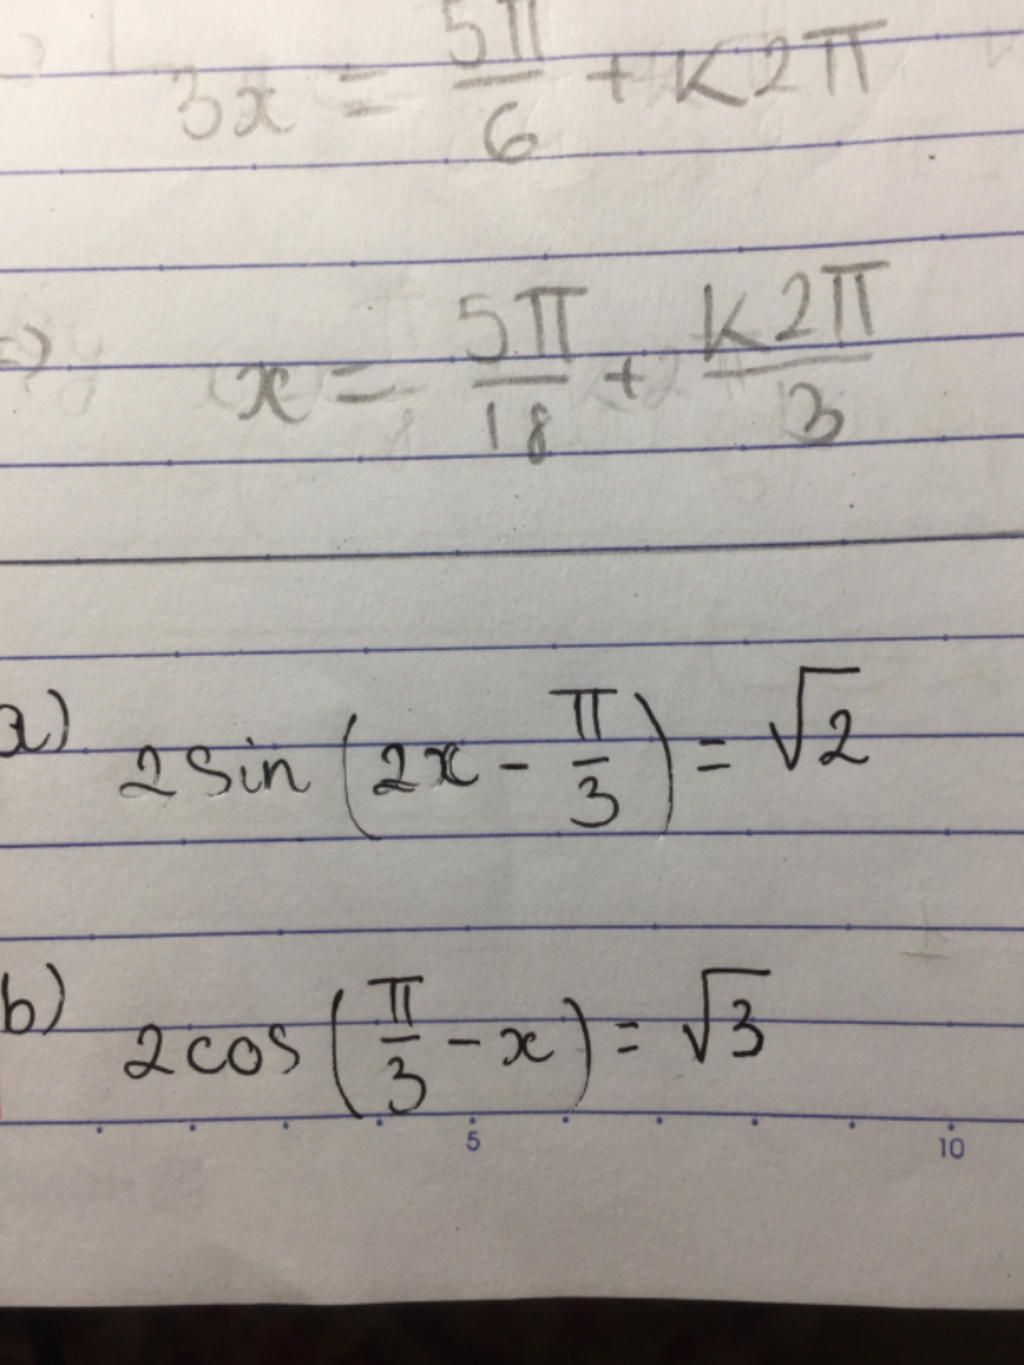 3x = 5π/6 + k2π
=> x = 5π/18 + k2π/3
a) 2sin(2x - π/3) = √2
b) 2cos(π/3 - x) = √3
5 10